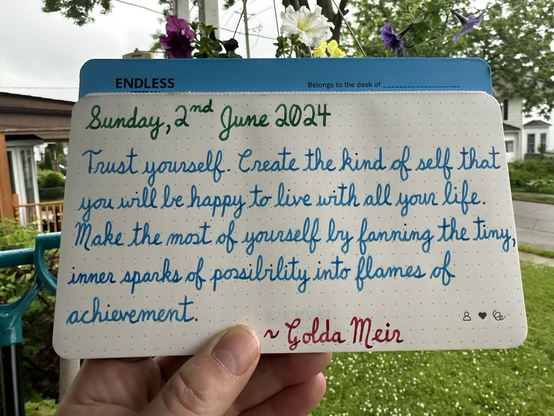 ENDLESS
Belongs to the desk of
Sunday, 2nd June 2024
Trust yourself. Create the kind of self that
you will be happy to live with all your life.
Make the most of yourself by fanning the tiny,
inner sparks of possibility into flames of
achievement.
~ Golda Meir